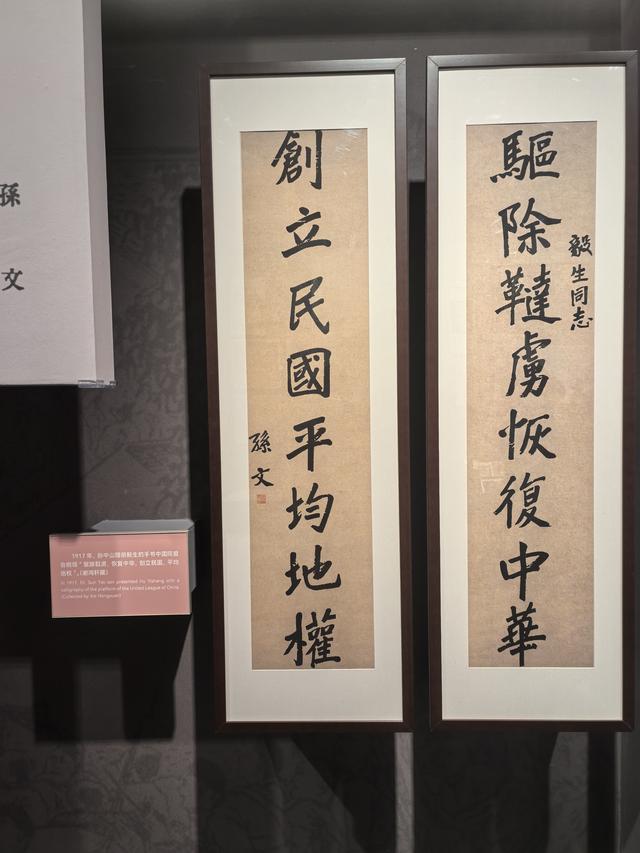 驅除韃虜恢復中華
毅生同志
創立民國平均地權
孫文
孫文
1917年，孙中山赠胡毅生的手书中国同盟
会纲领“驱除鞑虏，恢复中华，创立民国，平均
地权”。
In 1917, Dr. Sun Yat-sen presented Hu Yisheng with a
calligraphy of the platform of the United League of China.
(Collected by Xie Hengxuan)